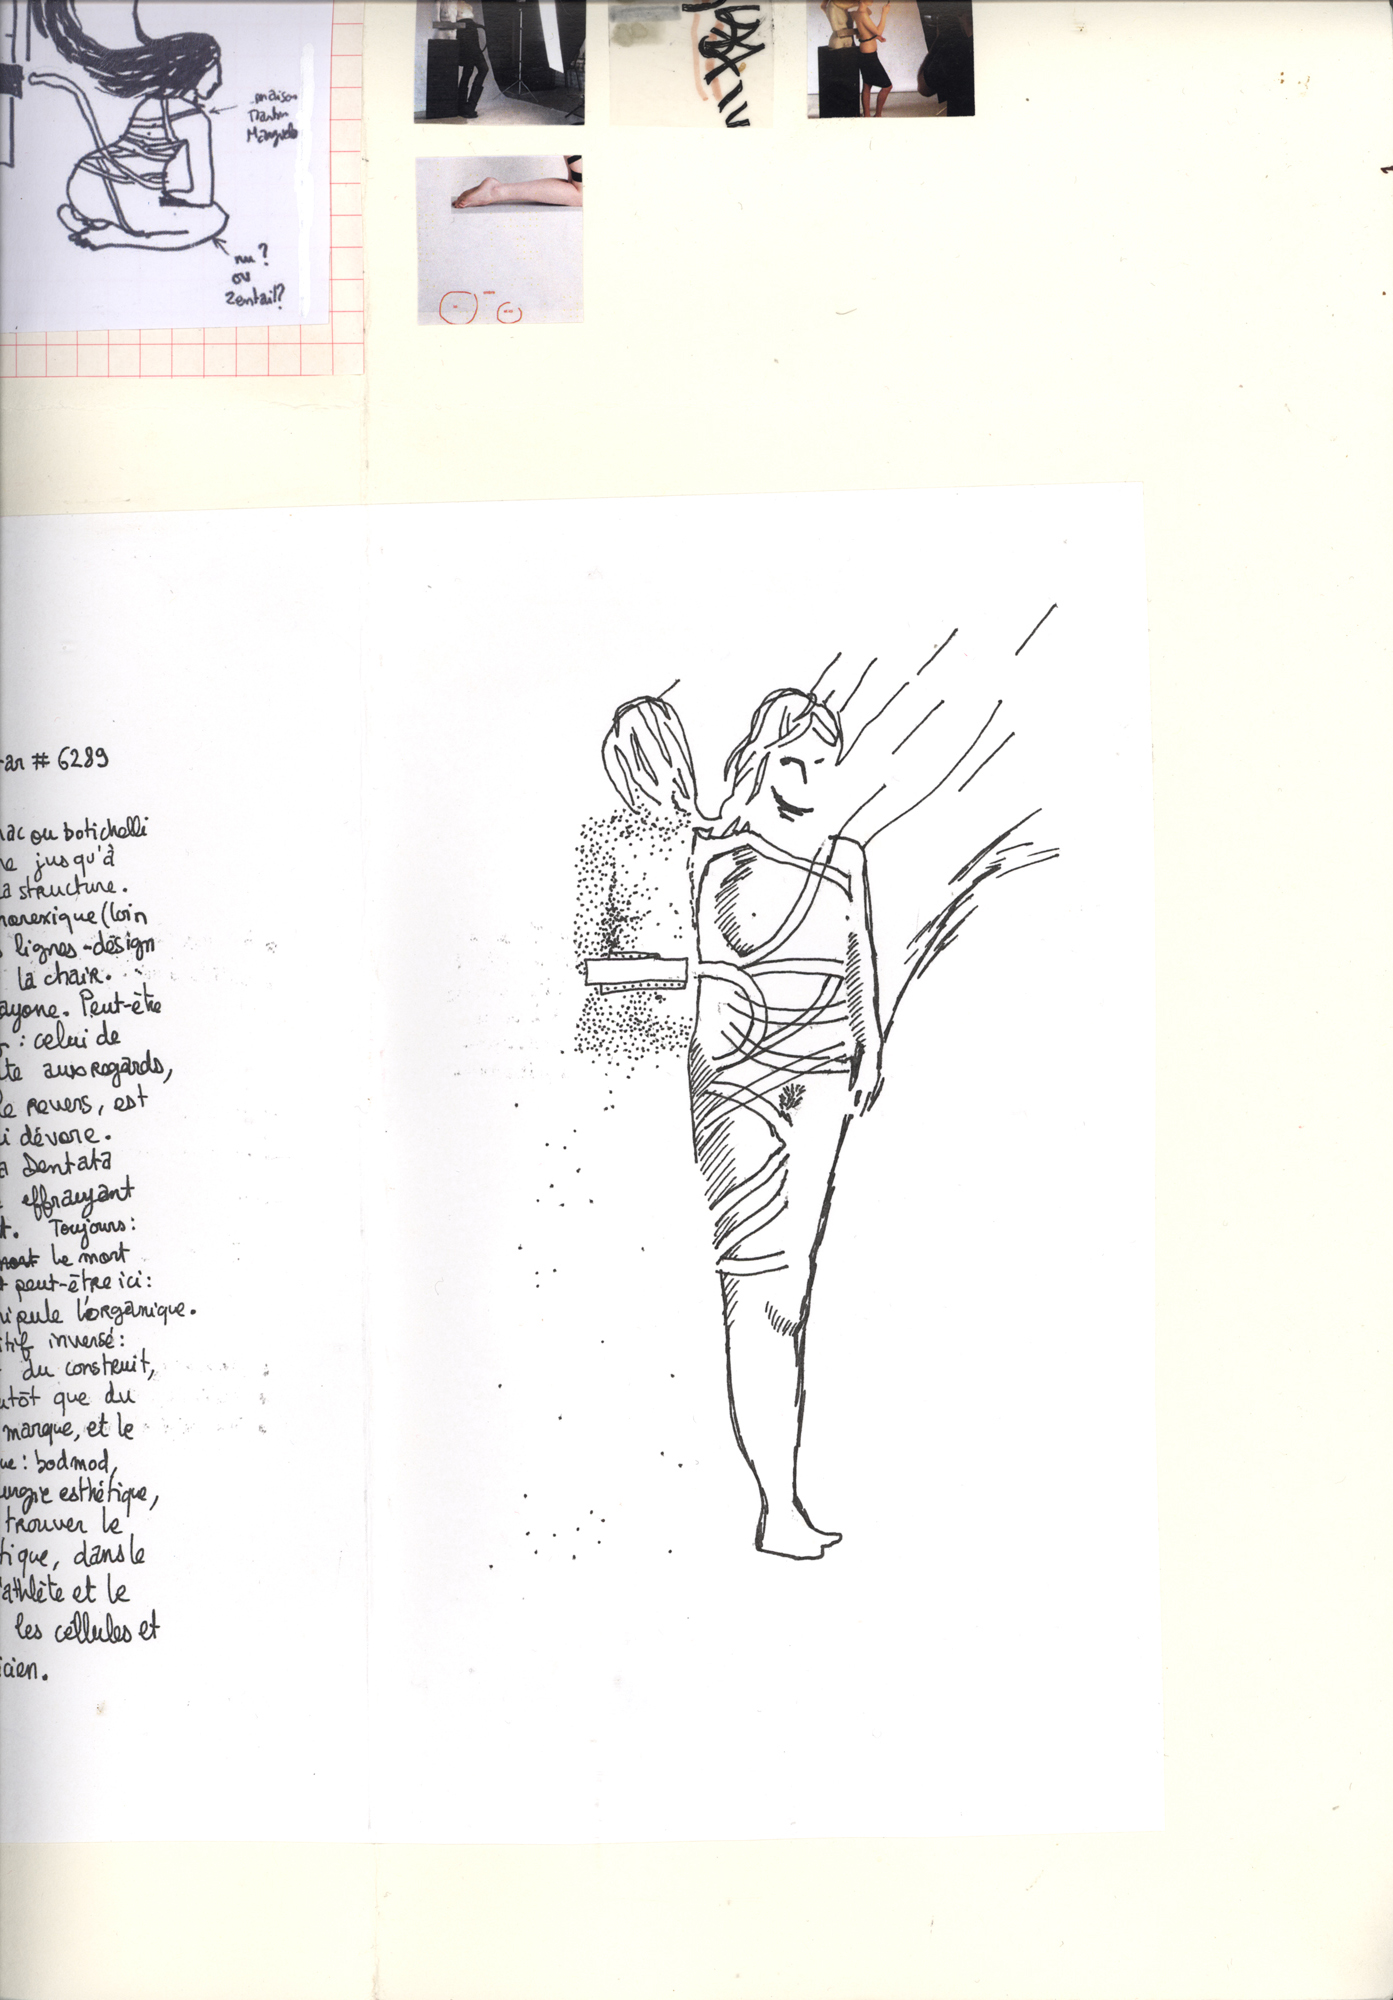 maison
Martin
Margiela
nu ?
ou
zentaï ?
ar # 6289
ac ou botichelli
e jusqu'à
a structure.
norexique (loin
lignes-désign
la chair.
ayone. Peut-être
: celui de
te aux regards,
le revers, est
i dévore.
a Dentata
effrayant
t. Toujours :
mort le mort
peut-être ici :
ipule l'organique.
itif inversé :
du construit,
utôt que du
marque, et le
ue : bodmod,
urgie esthétique,
trouver le
tique, dans le
'athlète et le
les céllules et
icien.